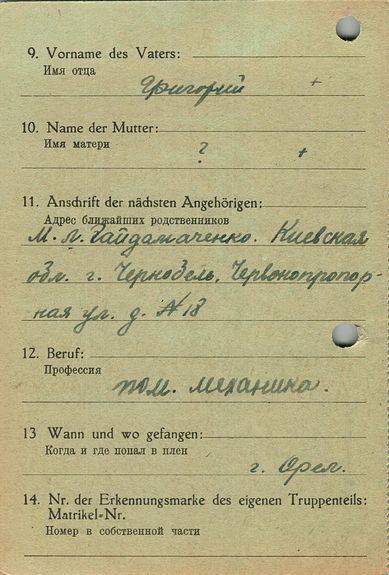 9. Vorname des Vaters:
Имя отца
Григорий +
10. Name der Mutter:
Имя матери
? +
11. Anschrift der nächsten Angehörigen:
Адрес ближайших родственников
М. Л. Гайдамаченко. Киевская
обл. г. Чернобель. Червонопропор-
ная ул. д. № 18
12. Beruf:
Профессия
пом. механика.
13 Wann und wo gefangen:
Когда и где попал в плен
г. Орел.
14. Nr. der Erkennungsmarke des eigenen Truppenteils:
Matrikel-Nr.
Номер в собственной части